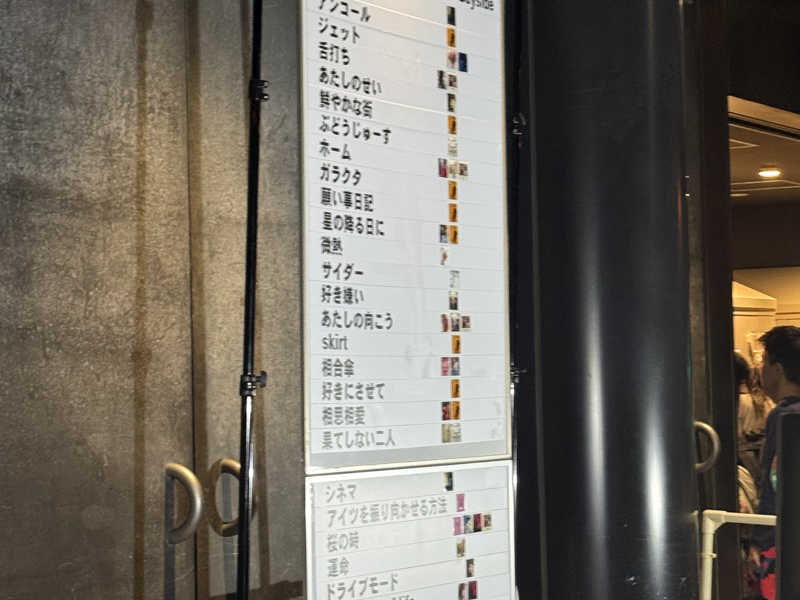 Bayside
アンコール
ジェット
舌打ち
あたしのせい
鮮やかな街
ぶどうじゅーす
ホーム
ガラクタ
願い事日記
星の降る日に
微熱
サイダー
好き嫌い
あたしの向こう
skirt
相合傘
好きにさせて
相思相愛
果てしない二人
シネマ
アイツを振り向かせる方法
桜の時
運命
ドライブモード